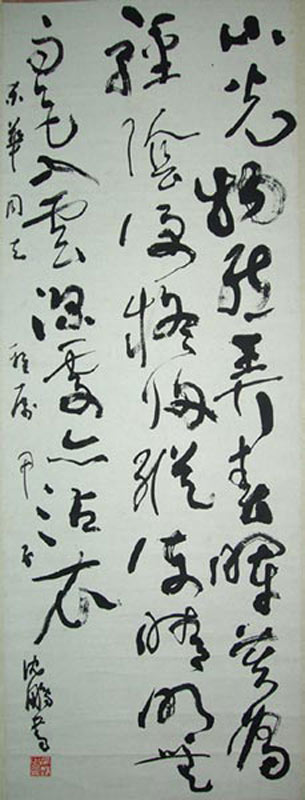 山光物態弄春暉莫為
輕陰便擬歸縱使晴明無
雨色入雲深處亦沾衣
華同志
沈鵬書